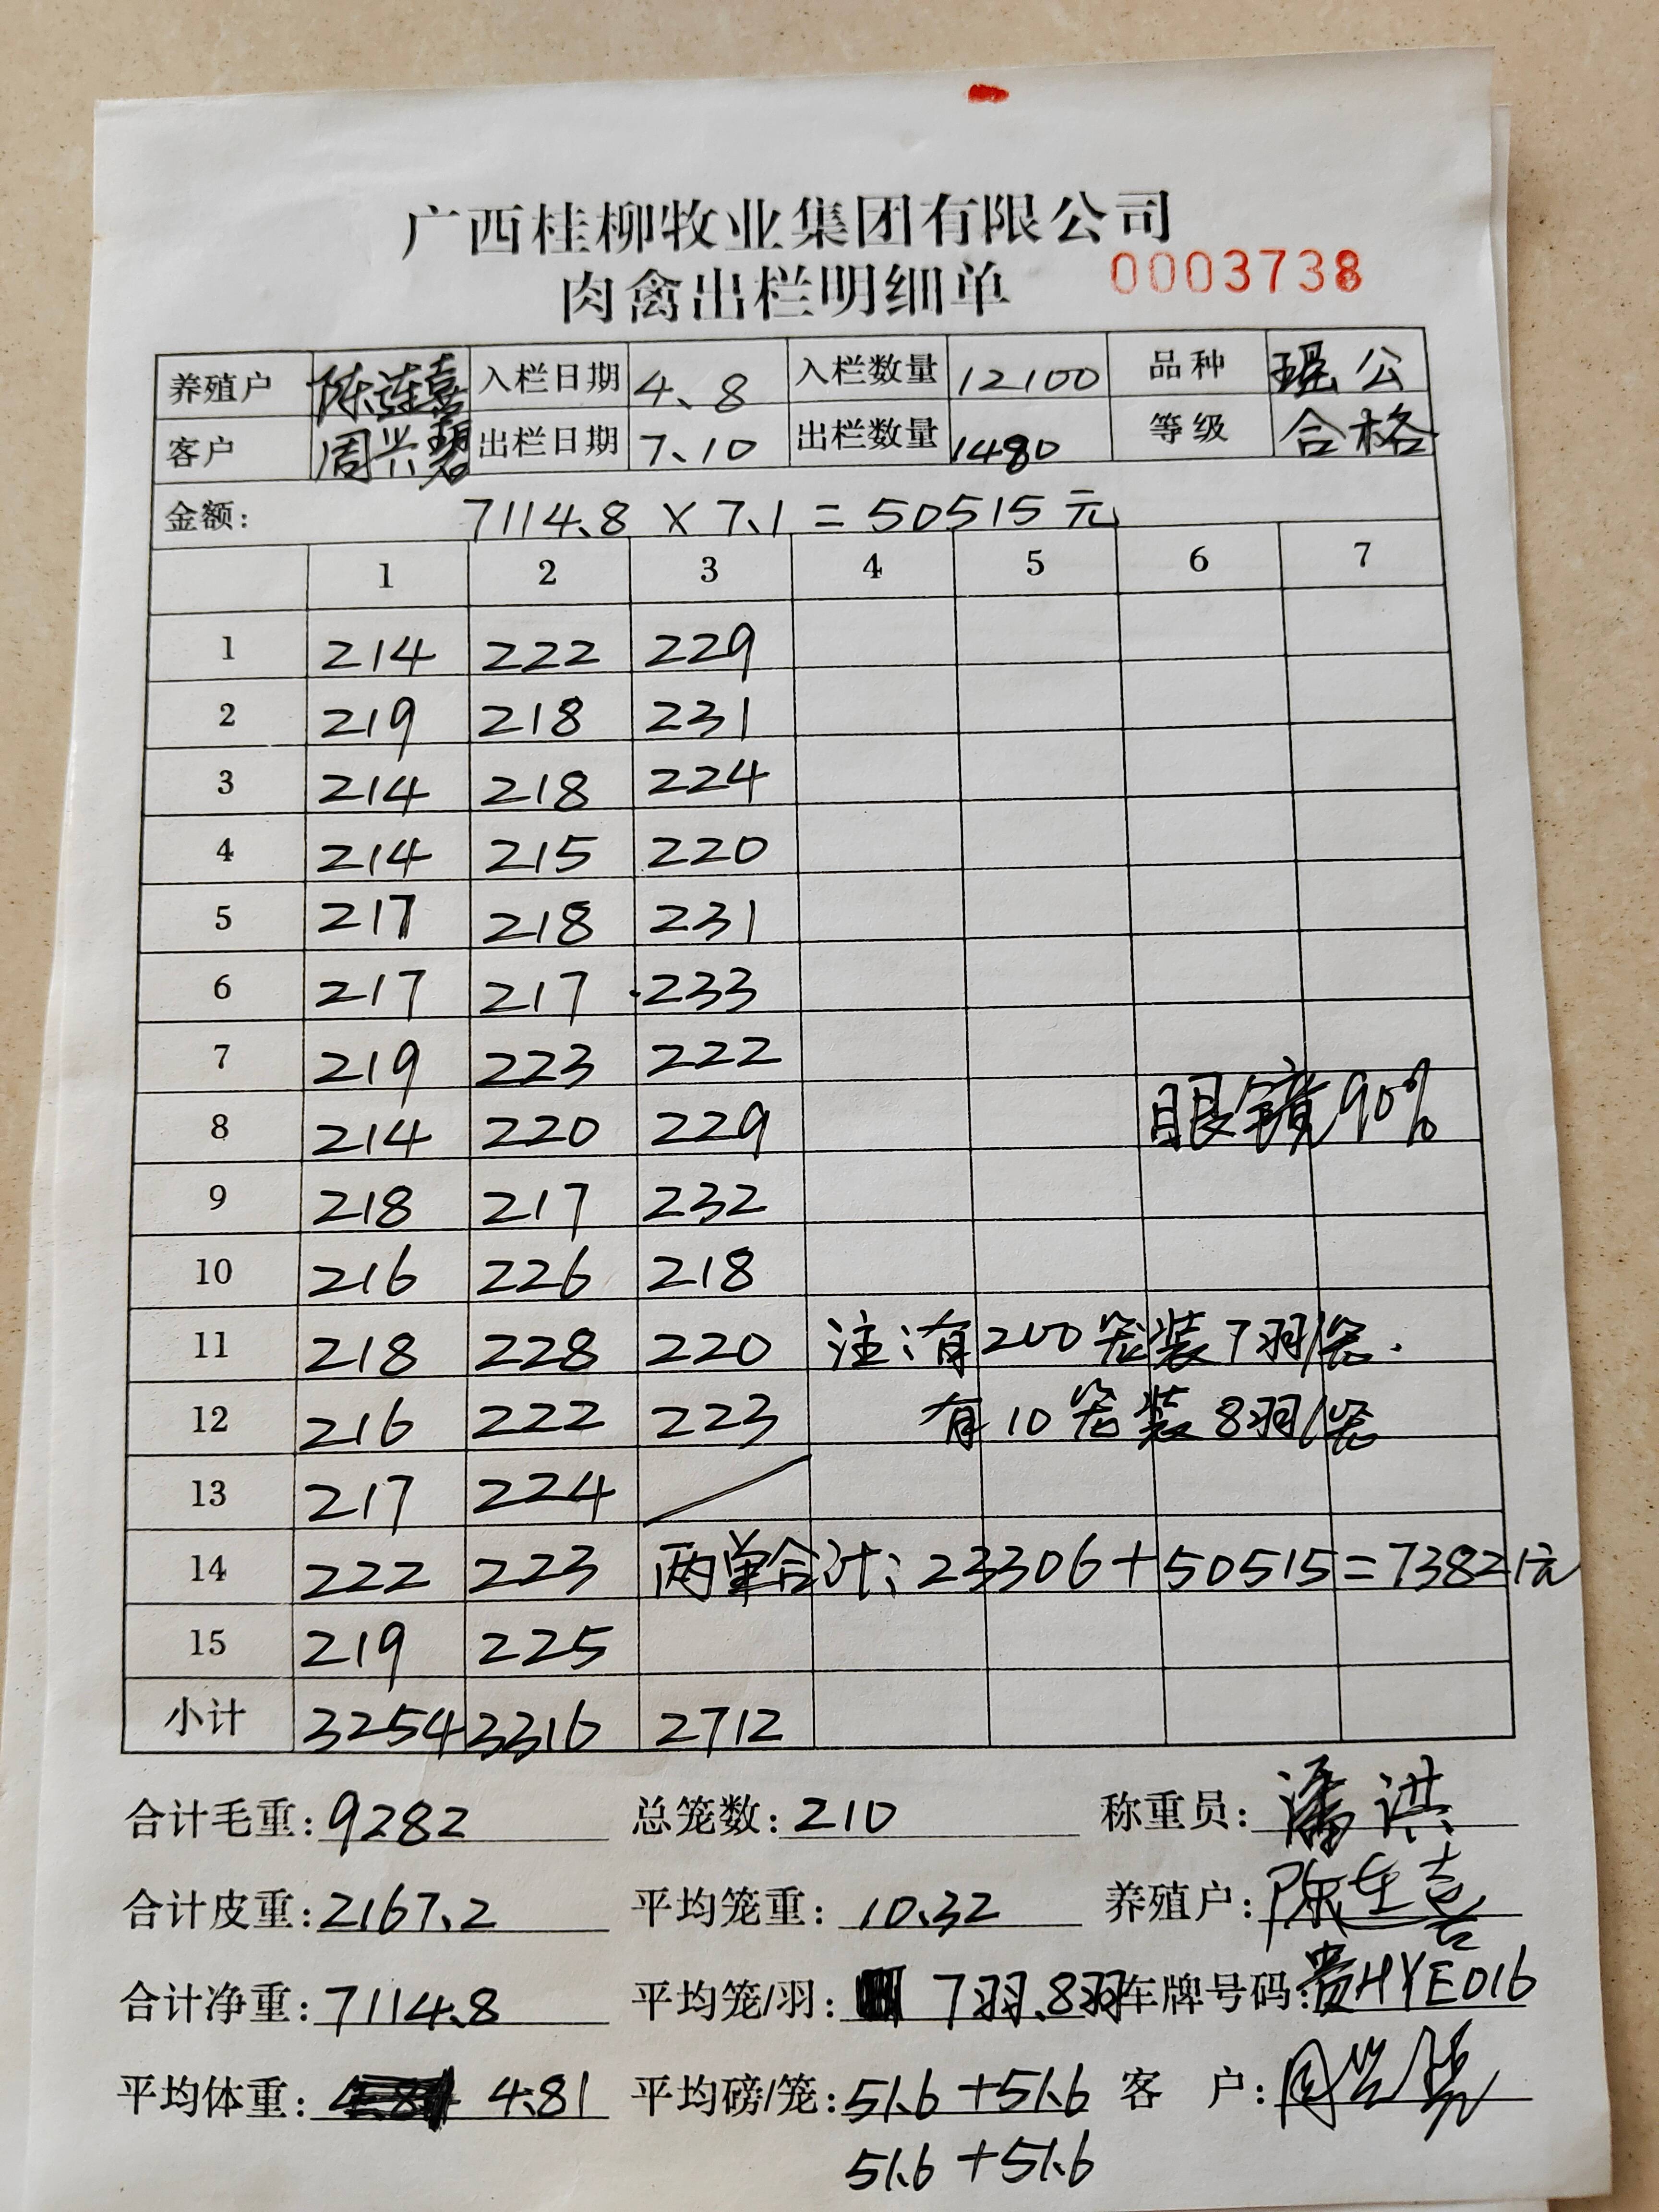 广西桂柳牧业集团有限公司
肉禽出栏明细单 0003738
养殖户 陈连喜 入栏日期 4、8 入栏数量 12100 品种 瑶公
客户 周兴碧 出栏日期 7、10 出栏数量 1480 等级 合格
金额: 7114.8 × 7.1 = 50515元
1 2 3 4 5 6 7
1 214 222 229
2 219 218 231
3 214 218 224
4 214 215 220
5 217 218 231
6 217 217 233
7 219 223 222
8 214 220 229 眼镜90%
9 218 217 232
10 216 226 218
11 218 228 220 注:有200笼装7羽/笼.
12 216 222 223 有10笼装8羽/笼
13 217 224
14 222 223 两单合计: 23306+50515=73821元
15 219 225
小计 3254 3316 2712
合计毛重: 9282 总笼数: 210 称重员: 潘洪
合计皮重: 2167.2 平均笼重: 10.32 养殖户: 陈连喜
合计净重: 7114.8 平均笼/羽: 7羽、8羽 车牌号码: 贵HYE016
平均体重: 4.81 平均磅/笼: 51.6+51.6 客 户:
51.6+51.6